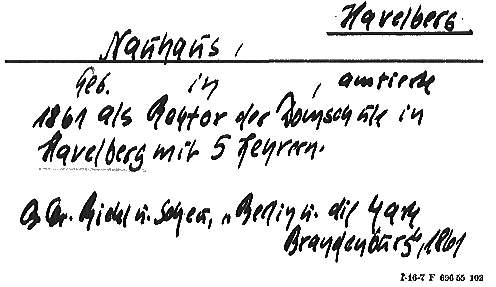 Havelberg.
Nauhaus,
Geb. in , amtierte
1861 als Rektor der Domschule in
Havelberg mit 5 Lehrern.
Dr. u. "Berlin u. die Mark
Brandenburg", 1861
I-16-7 F 696 55 102